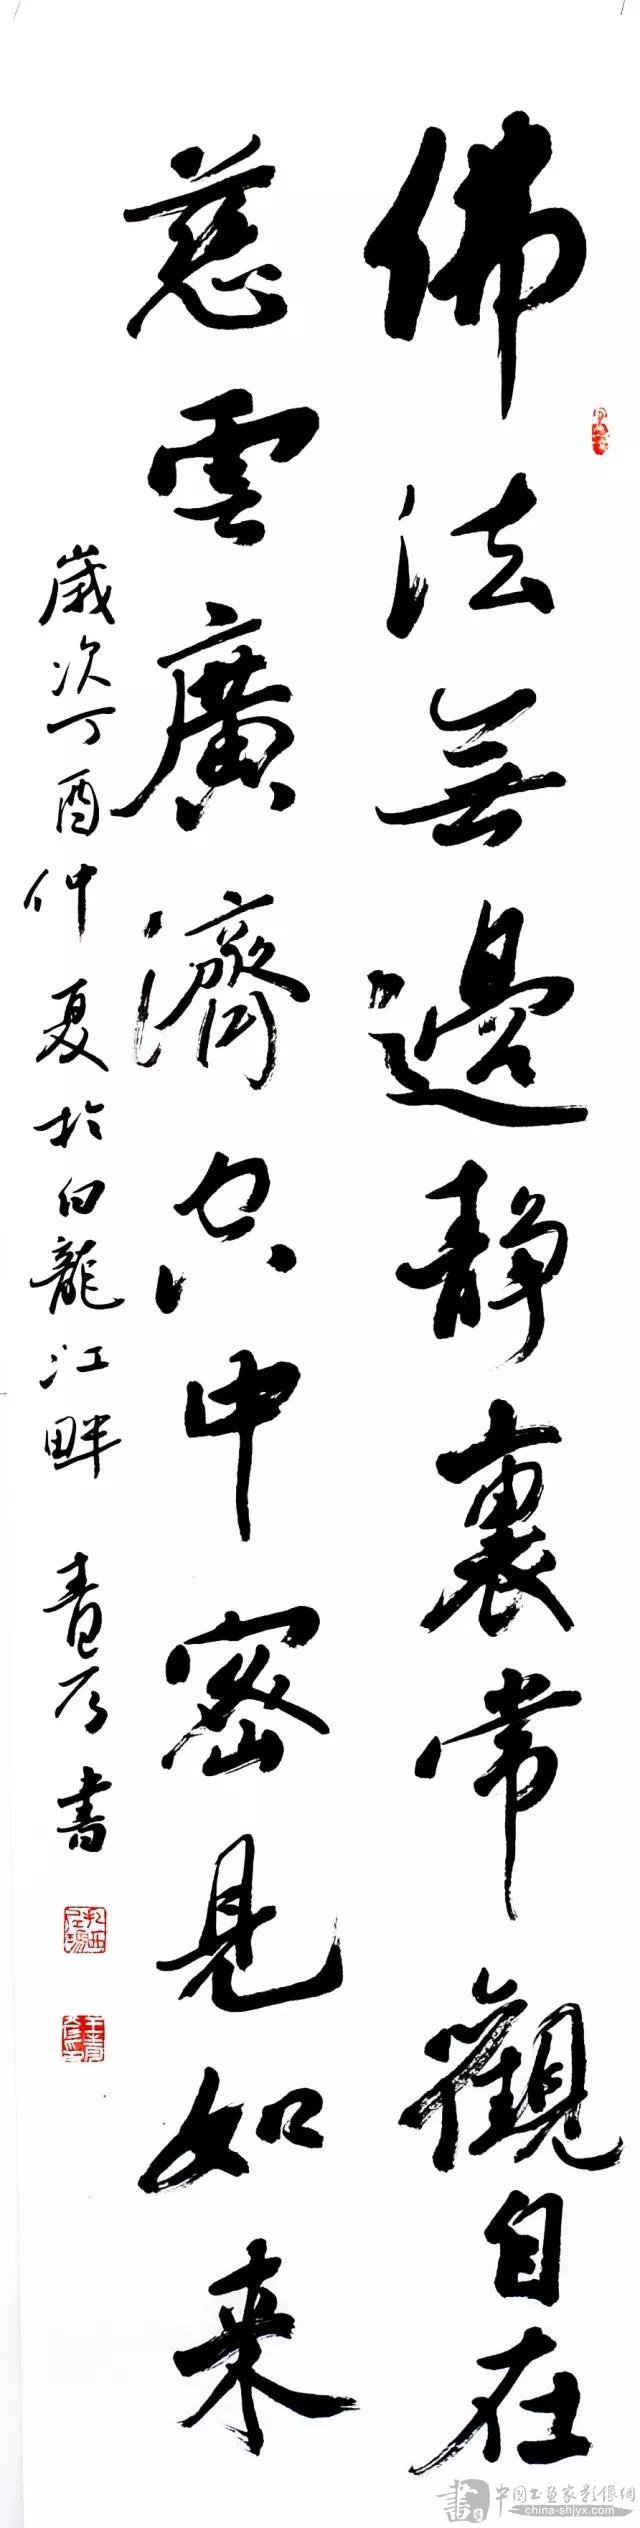 佛法无邊靜裏常觀自在
慈雲廣濟空中密見如来
歲次丁酉仲夏於白龍江畔 青彦書
中國书画家影像網
china-shjyx.com